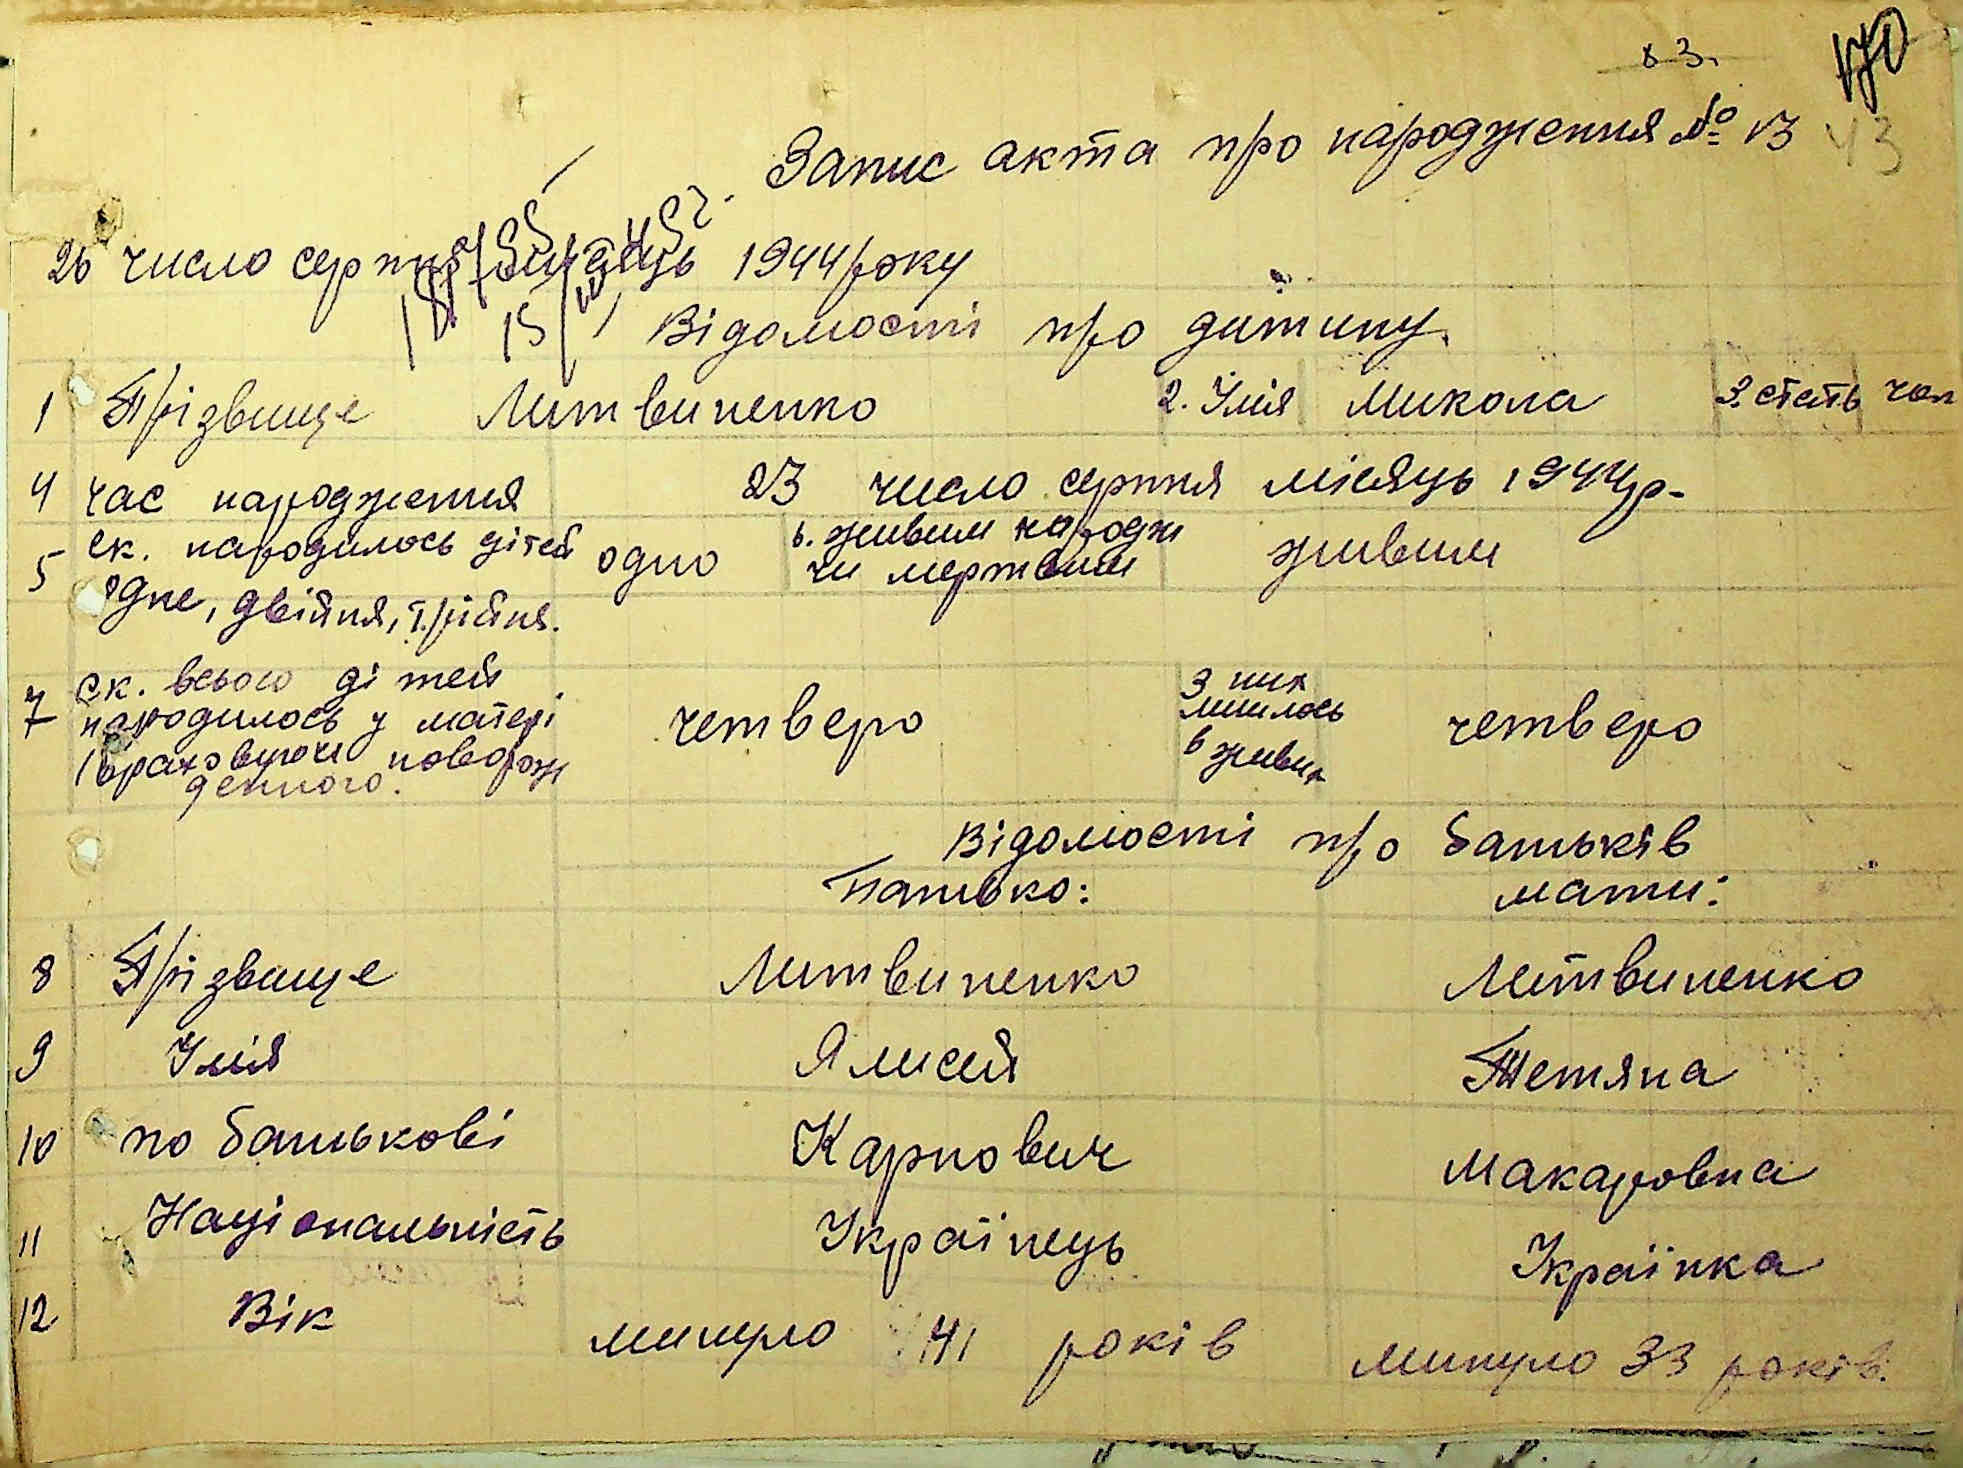 83.
170
Запис акта про народження № 13
43
26 число серпня місяць 1944 року
15/III
Відомості про дитину.
1 Прізвище Литвиненко 2. Імія Микола 3. стать чол
4 час народження 23 число серпня місяць 1944р-
5 ск. народилось дітей одно ь. живим народж живим
чи мертвим
одне, двійня, трійня.
7 ск. всього дітей четверо З них четверо
народилось у матері лишилось
(враховуючи новорож в живих
денного.
Відомості про батьків
Батько: мати:
8 Прізвище Литвиненко Литвиненко
9 Імія Алисей Тетяна
10 по батькові Карпович Макаровна
11 Національність Українець Українка
12 Вік минуло 41 років минуло 33 років.